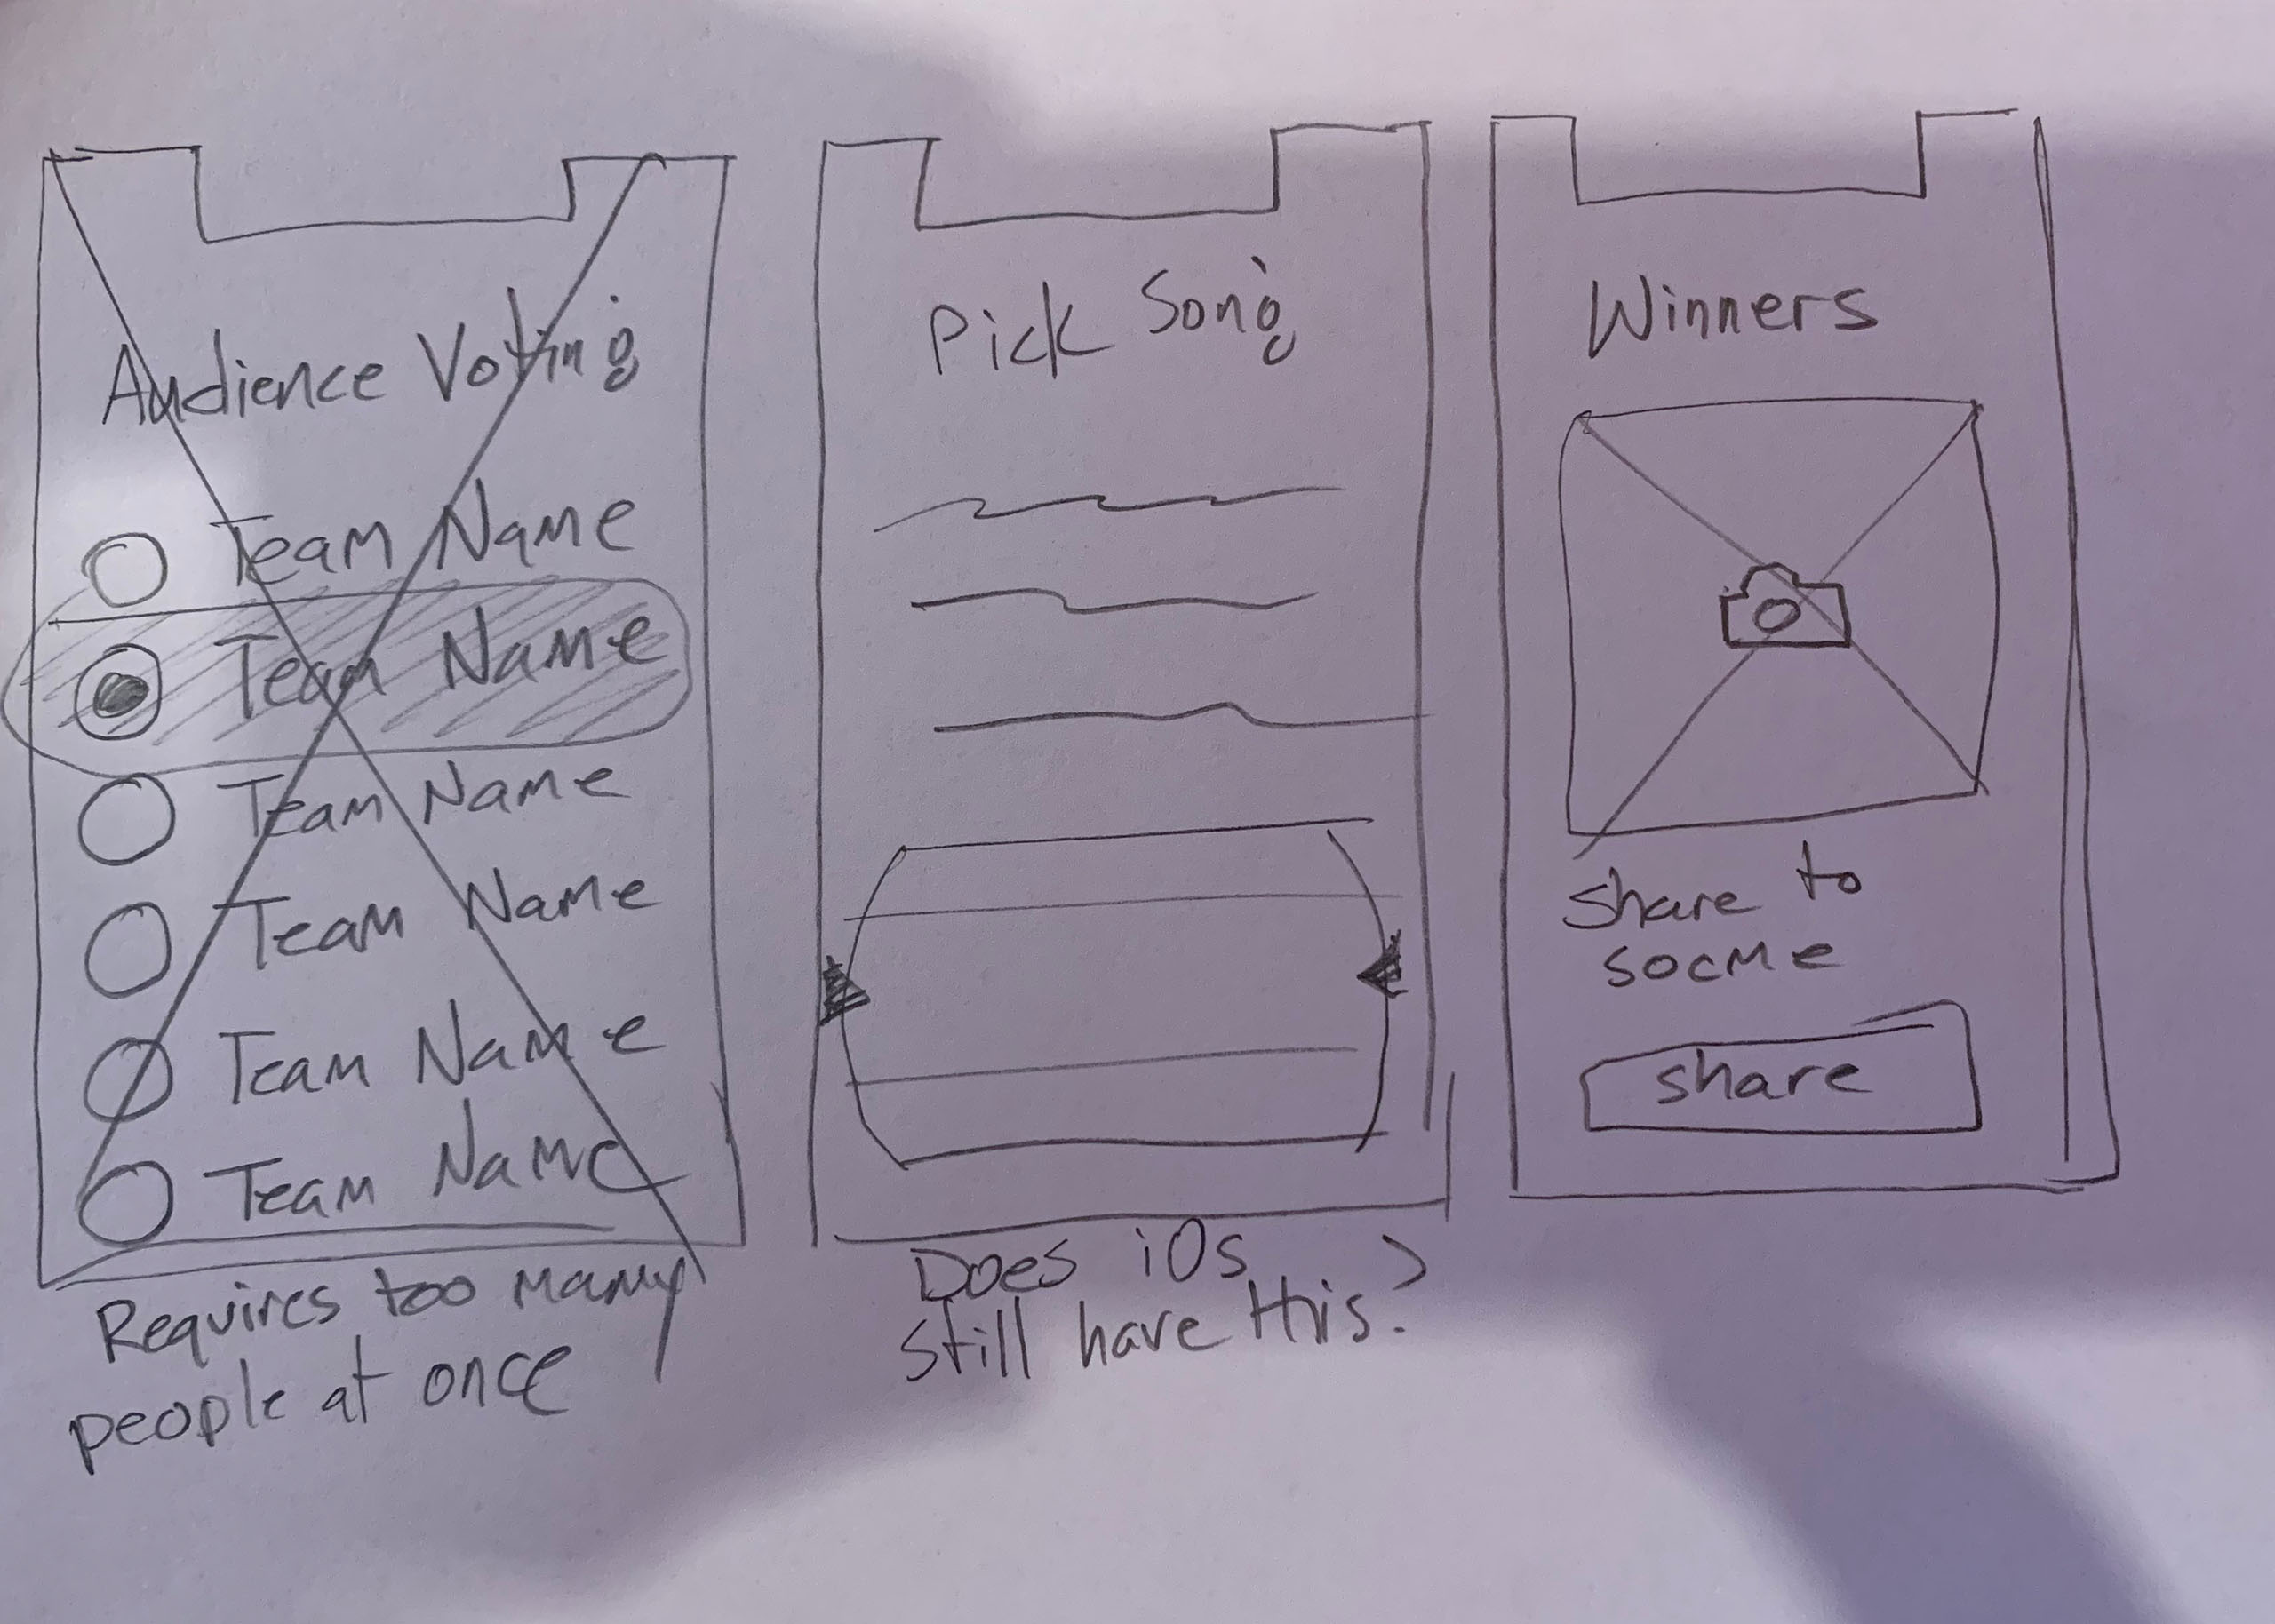 Audience Voting
Team Name
Team Name
Team Name
Team Name
Team Name
Team Name
Requires too many
people at once
Pick Song
Does iOs
still have this?
Winners
Share to
socme
share